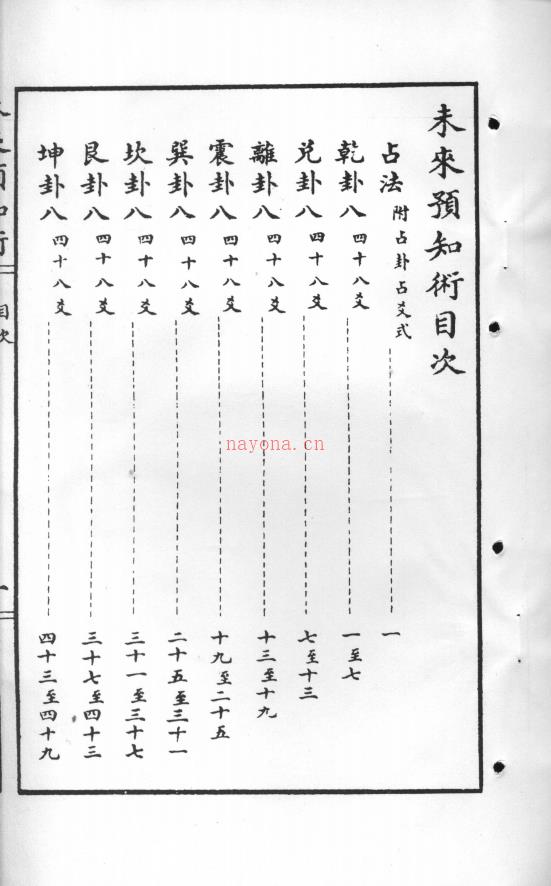 未來預知術目次
占法 附占卦占爻式 一
乾卦八 四十八爻 一至七
兌卦八 四十八爻 七至十三
離卦八 四十八爻 十三至十九
震卦八 四十八爻 十九至二十五
巽卦八 四十八爻 二十五至三十一
坎卦八 四十八爻 三十一至三十七
艮卦八 四十八爻 三十七至四十三
坤卦八 四十八爻 四十三至四十九
目次
一
nayona.cn